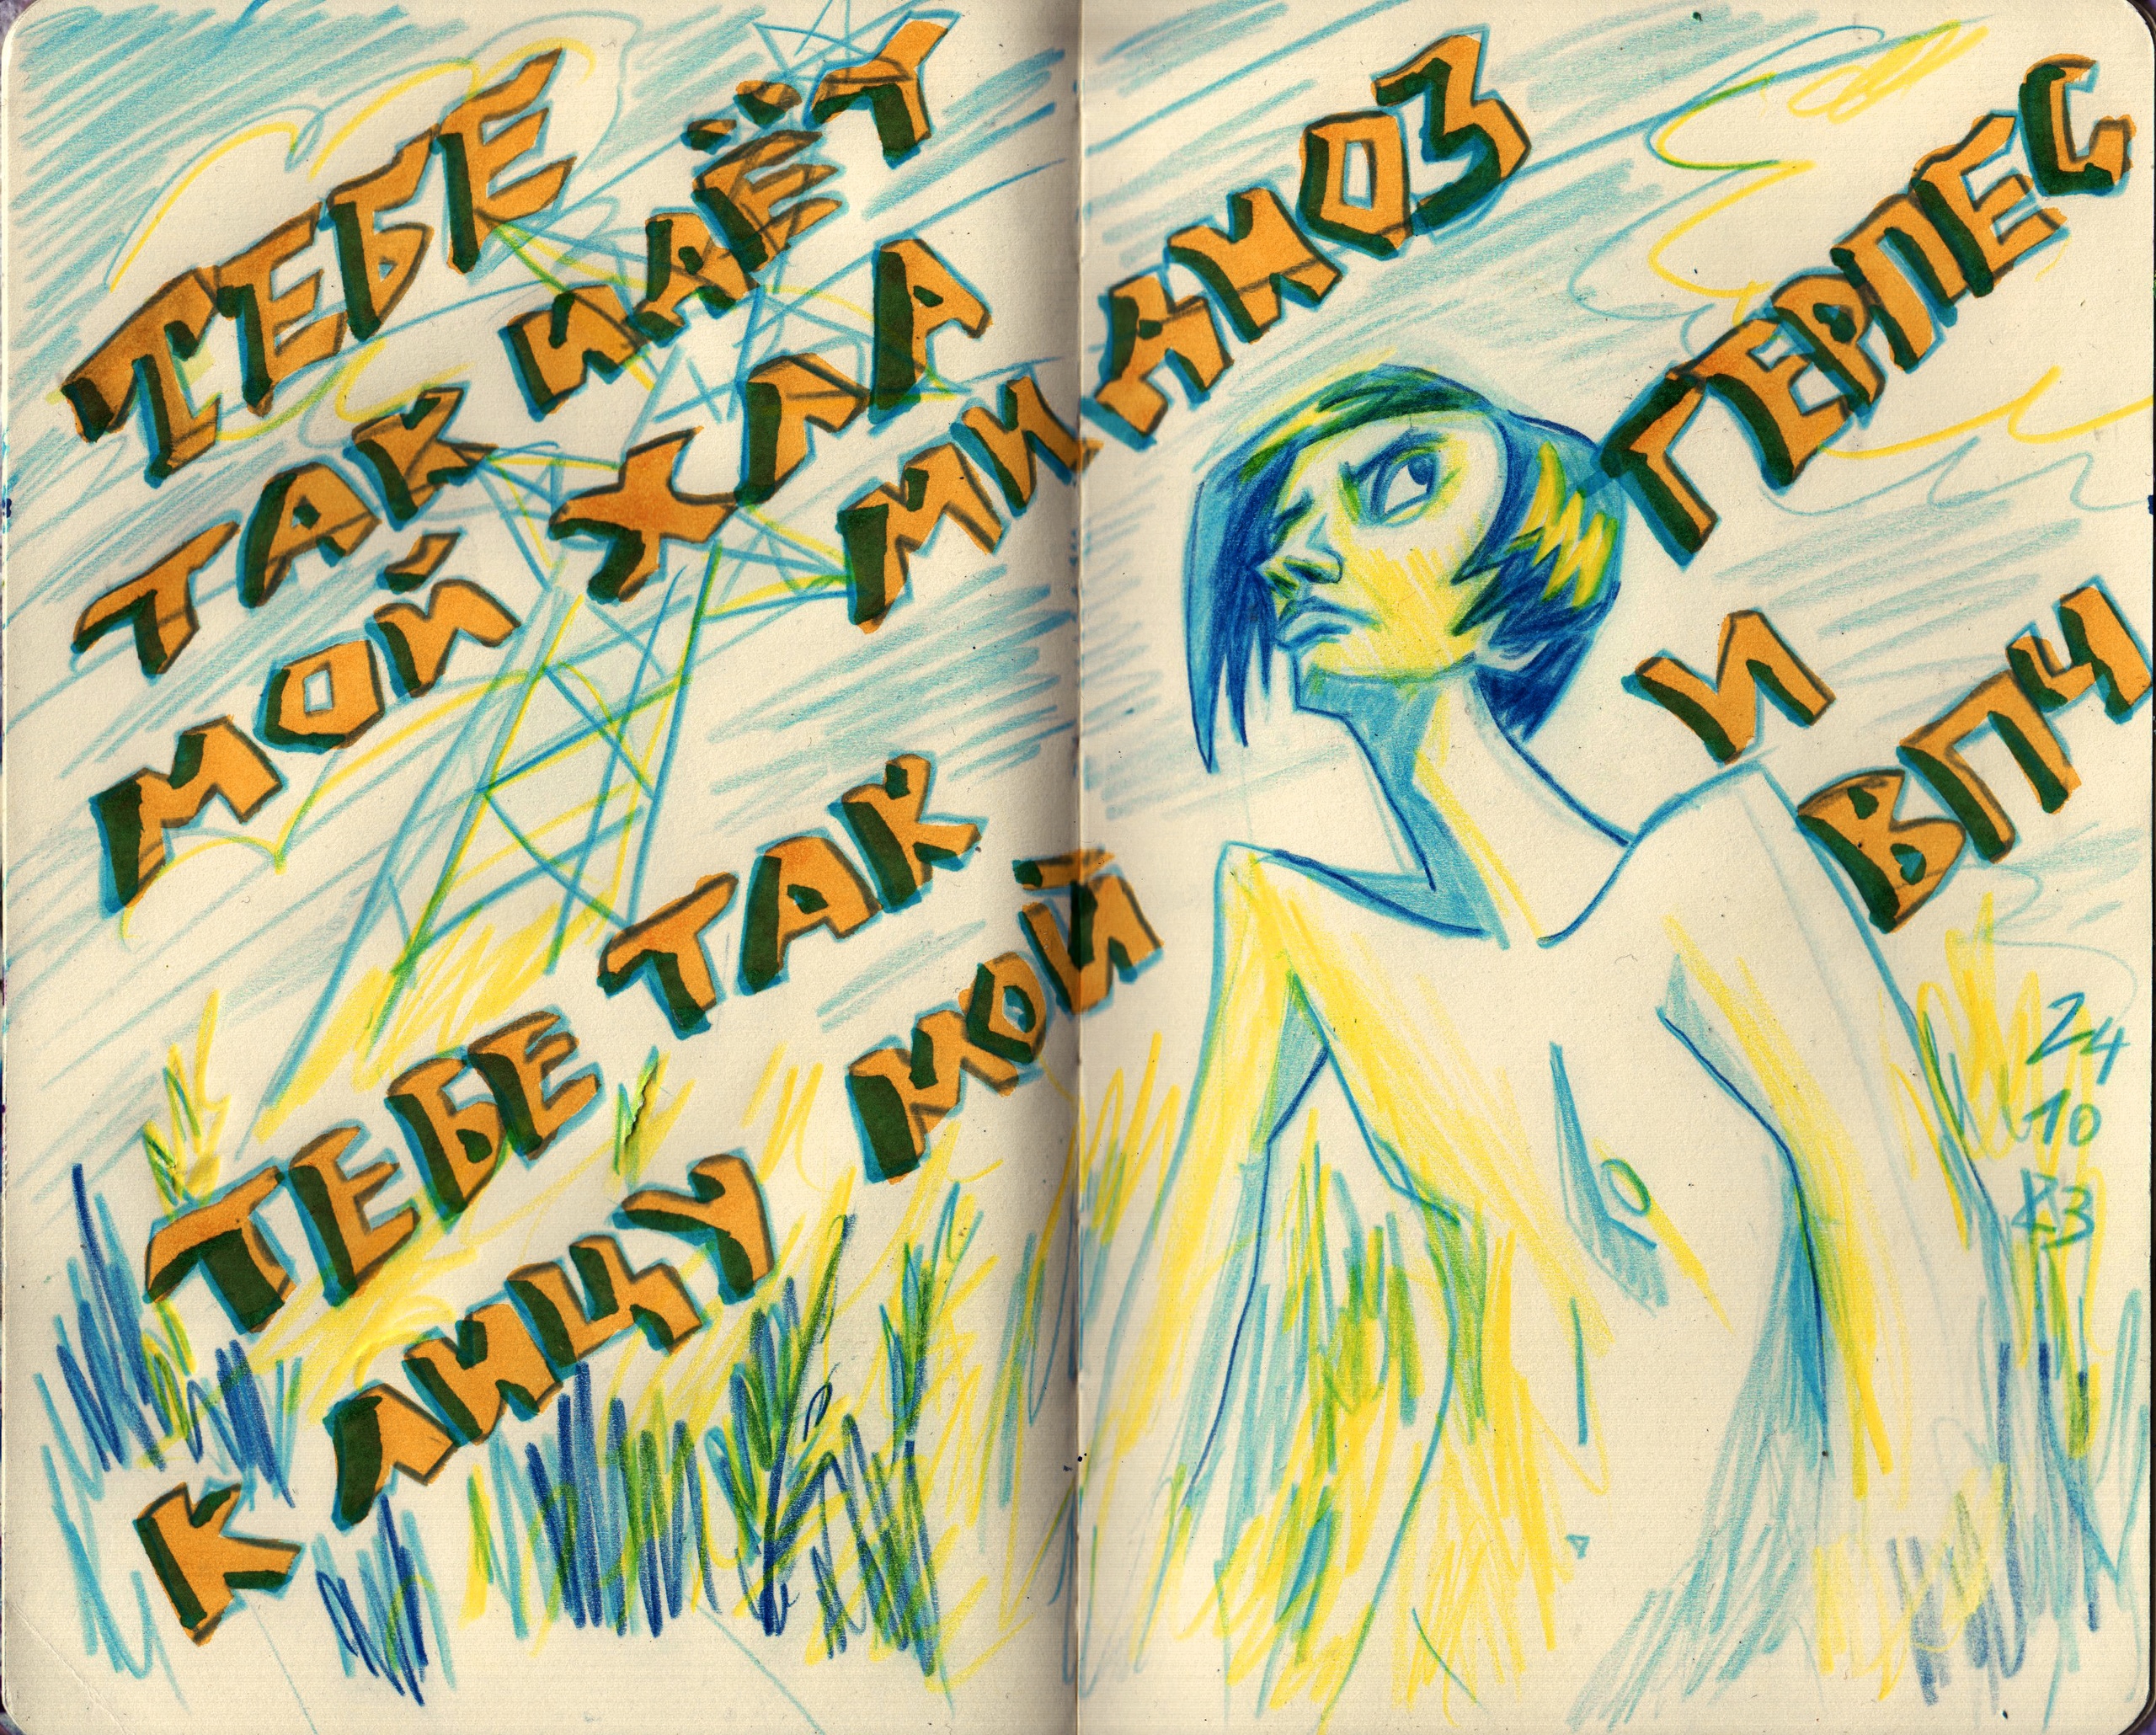 ТЕБЕ
ТАК ИДЁТ
МОЙ ХЛА
МИДИОЗ
ТЕБЕ ТАК
К ЛИЦУ МОЙ
ГЕРПЕС
И
ВПЧ
24
10
23